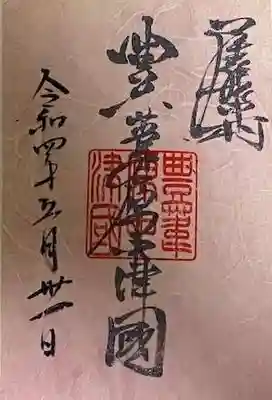 豐葦原中津國
豊葦原中津國
令和四年五月卅一日